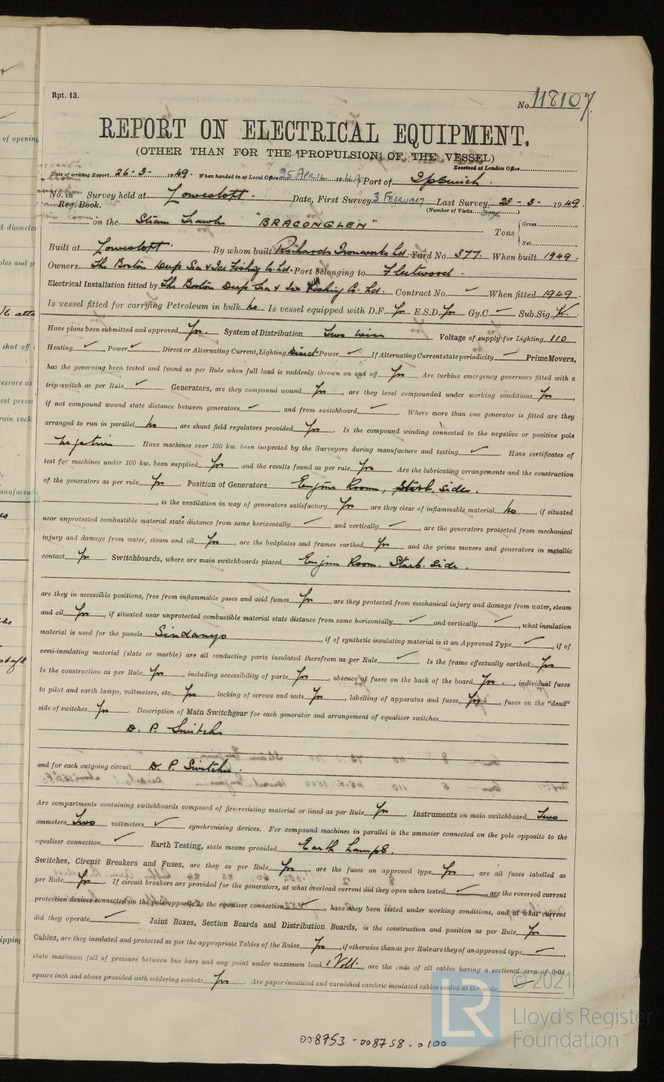 Rpt. 13.
No. 118107.
REPORT ON ELECTRICAL EQUIPMENT.
(OTHER THAN FOR THE PROPULSION OF THE VESSEL)
Received at London Office
Date of writing Report 26-3-1949. When handed in at Local Office 25 APRIL 1949 Port of Ipswich
No. in Survey held at Lowestoft. Date, First Survey 3 February Last Survey 23-3-1949
Reg. Book. (Number of Visits )
on the Steam Trawler "BRACONGLEN" Tons { Gross
Net
Built at Lowestoft By whom built Richards Ironworks Ld. Yard No. 377. When built 1949.
Owners The Boston Deep Sea & Ice Fishing Co. Ld. Port belonging to Fleetwood.
Electrical Installation fitted by The Boston Deep Sea & Ice Fishing Co. Ld. Contract No. ✓ When fitted 1949.
Is vessel fitted for carrying Petroleum in bulk no Is vessel equipped with D.F. Yes E.S.D. Yes Gy.C. ✓ Sub.Sig.
Have plans been submitted and approved Yes. System of Distribution Two wire Voltage of supply for Lighting 110
Heating ✓ Power ✓ Direct or Alternating Current, Lighting Direct Power ✓ If Alternating Current state periodicity ✓ Prime Movers,
has the governing been tested and found as per Rule when full load is suddenly thrown on and off Yes Are turbine emergency governors fitted with a
trip-switch as per Rule ✓ Generators, are they compound wound Yes, are they level compounded under working conditions Yes
if not compound wound state distance between generators ✓ and from switchboard ✓ Where more than one generator is fitted are they
arranged to run in parallel no, are shunt field regulators provided Yes Is the compound winding connected to the negative or positive pole
Negative Have machines over 100 kw. been inspected by the Surveyors during manufacture and testing ✓ Have certificates of
test for machines under 100 kw. been supplied Yes and the results found as per rule Yes Are the lubricating arrangements and the construction
of the generators as per rule Yes Position of Generators Engine Room, Starb. Side.
, is the ventilation in way of generators satisfactory Yes are they clear of inflammable material no, if situated
near unprotected combustible material state distance from same horizontally ✓ and vertically ✓, are the generators protected from mechanical
injury and damage from water, steam and oil Yes, are the bedplates and frames earthed Yes and the prime movers and generators in metallic
contact Yes Switchboards, where are main switchboards placed Engine Room. Starb. Side.
are they in accessible positions, free from inflammable gases and acid fumes Yes, are they protected from mechanical injury and damage from water, steam
and oil Yes, if situated near unprotected combustible material state distance from same horizontally ✓ and vertically ✓, what insulation
material is used for the panels Sindanyo, if of synthetic insulating material is it an Approved Type ✓, if of
semi-insulating material (slate or marble) are all conducting parts insulated therefrom as per Rule ✓ Is the frame effectually earthed Yes
Is the construction as per Rule Yes, including accessibility of parts Yes, absence of fuses on the back of the board Yes, individual fuses
to pilot and earth lamps, voltmeters, etc. Yes locking of screws and nuts Yes, labelling of apparatus and fuses Yes, fuses on the "dead"
side of switches Yes Description of Main Switchgear for each generator and arrangement of equaliser switches
D. P. Switch
and for each outgoing circuit D. P. Switches.
Are compartments containing switchboards composed of fire-resisting material or lined as per Rule Yes Instruments on main switchboard Two
ammeters Two voltmeters ✓ synchronising devices. For compound machines in parallel is the ammeter connected on the pole opposite to the
equaliser connection ✓ Earth Testing, state means provided Earth Lamps.
Switches, Circuit Breakers and Fuses, are they as per Rule Yes are the fuses an approved type Yes, are all fuses labelled as
per Rule Yes If circuit breakers are provided for the generators, at what overload current did they open when tested ✓ are the reversed current
protection devices connected on the pole opposite to the equaliser connection ✓, have they been tested under working conditions, and at what current
did they operate ✓ Joint Boxes, Section Boards and Distribution Boards, is the construction and position as per Rule Yes
Cables, are they insulated and protected as per the appropriate Tables of the Rules Yes, if otherwise than as per Rule are they of an approved type ✓,
state maximum fall of pressure between bus bars and any point under maximum load 1 Volt, are the ends of all cables having a sectional area of 0·01
square inch and above provided with soldering sockets Yes Are paper insulated and varnished cambric insulated cables sealed at the ends ✓
© 2021
LR
Lloyd's Register
Foundation
008753-008758-0100